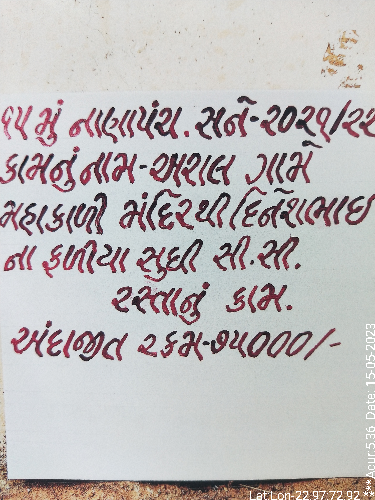 ૧૫મું નાણાપંચ. સને-૨૦૨૧/૨૨
કામનું નામ-અશાલ ગામે
મહાકાળી મંદિરથી દિનેશભાઇ
ના ફળીયા સુધી સી.સી.
૨સ્તાનું કામ.
અંદાજીત ૨કમ-૭૫૦૦૦/-
Lat Lon-22.97,72.92 *** Acur:5.36 Date: 15-05-2023